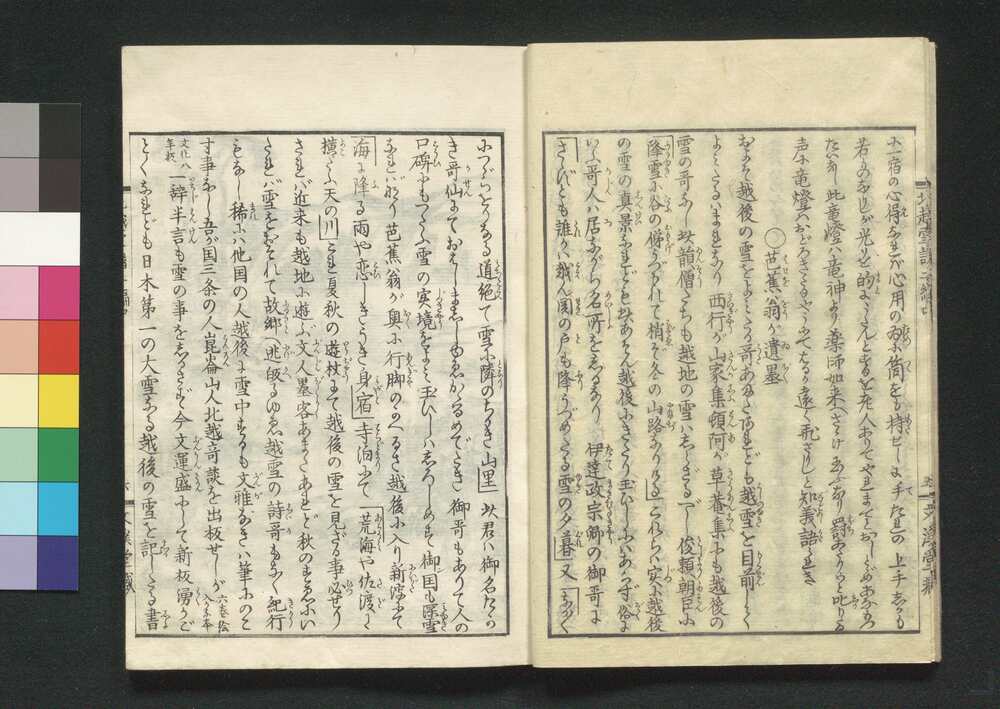 小一宿の心得あれバ心用の為に筒をも持ぜしよ手たれの上手しかも
若ものなれバ光りを的よくたんとするを老人ありてやよまてとおしとゞめあなもつ
たいなし此竜燈ハ竜神より薬師如来へさゝげ玉ふなり罰あたりと叱りたる
声に竜燈ハおどろきたるやうにてはるか遠く飛さりしと知義語られき
○芭蕉翁が遺墨
およそ越後の雪をよミたる哥あまたあれども越雪を目前して
よミたるハまれなり西行が山家集頓阿が草菴集にも越後の
雪の哥なし此韻僧たちも越地の雪ハしらざるべし俊頼朝臣に
降雪に谷の俤うづもれて梢ぞ冬の山路なりける これらハ実に越後
の雪の真景なれども此あそん越後にきたり玉ひしにハあらず俗に
いふ哥人ハ居ながら名所をしるなり 伊達政宗卿の御哥に
さゝずとも誰かハ越ん関の戸も降うづめたる雪の夕暮 又 なかく
につゞらをりなる道絶て雪に隣のちかき山里 此君ハ御名たか
き哥仙にておはしましゝゆゑかゝるめでたき御哥もありて人の
口碑にもつたふ雪の実境をよミ玉ひしハしろしめす御国も深雪
なれバなり芭蕉翁が奥に行脚のかへるさ越後に入り新潟にて
海に降る雨や恋しきうき身宿 寺泊にて 荒海や佐渡に
横たふ天の川 これ夏秋の遊杖にて越後の雪を見ざる事必せり
されバ近来も越地に遊ぶ文人墨客あまたあれど秋のすゑにい
たれバ雪をおそれて故郷へ逃皈るゆゑ越雪の詩哥もなく紀行
もなし稀にハ他国の人越後に雪中するも文雅なきハ筆にのこ
す事なし吾が国三条の人崑崙山人北越奇談を出板せしが 六巻絵入かな本
文化八年板 一辞半言も雪の事をしるさず今文運盛にして新板湧がご
とくなれども日本第一の大雪なる越後の雪を記したる書